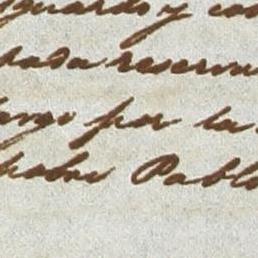 guardo y con
pada reserva
largo por la
pobre Pablo